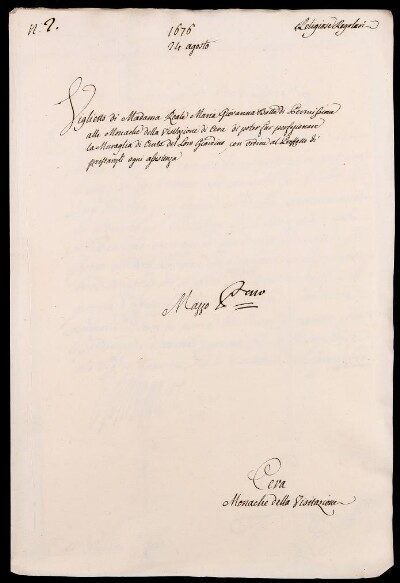 n.° 2.
1676
24 agosto
Religiose Regolari
Viglietto di Madama Reale Maria Giovanna Batta di Permissione
alle Monache della Visitazione di Ceva di poter far perfezionare
la Muraglia di Cinta del Loro Giardino, con ordine al Prefetto di
prestargli ogni assistenza
Mazzo Primo
Ceva
Monache della Visitazione